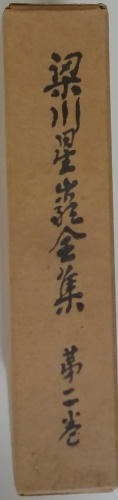 梁川星巖全集 第二巻